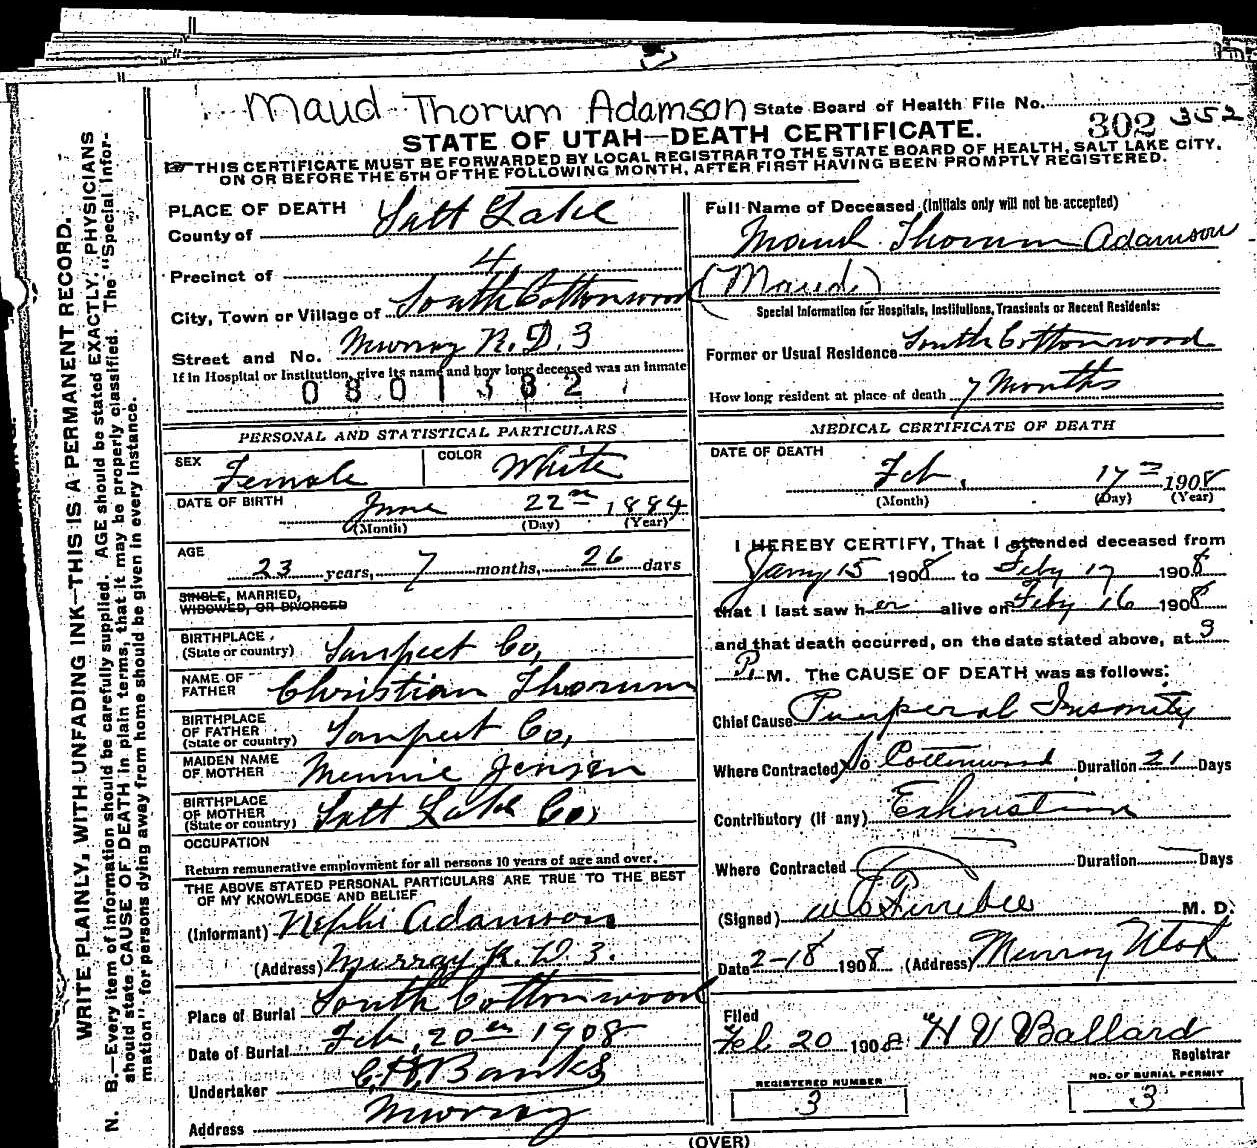 Maud Thorum Adamson State Board of Health File No.
302 352
STATE OF UTAH—DEATH CERTIFICATE.
☞ THIS CERTIFICATE MUST BE FORWARDED BY LOCAL REGISTRAR TO THE STATE BOARD OF HEALTH, SALT LAKE CITY,
ON OR BEFORE THE 5TH OF THE FOLLOWING MONTH, AFTER FIRST HAVING BEEN PROMPTLY REGISTERED.
WRITE PLAINLY, WITH UNFADING INK—THIS IS A PERMANENT RECORD.
N. B.—Every item of information should be carefully supplied. AGE should be stated EXACTLY. PHYSICIANS
should state CAUSE OF DEATH in plain terms, that it may be properly classified. The "Special Infor-
mation" for persons dying away from home should be given in every instance.
PLACE OF DEATH
County of Salt Lake
Precinct of 4
City, Town or Village of South Cottonwood
Street and No. Murray R.D. 3
If in Hospital or Institution, give its name and how long deceased was an inmate
0801382
PERSONAL AND STATISTICAL PARTICULARS
SEX Female COLOR White
DATE OF BIRTH June 22nd 1884
(Month) (Day) (Year)
AGE
23 years, 7 months, 26 days
SINGLE, MARRIED,
WIDOWED, OR DIVORCED
BIRTHPLACE
(State or country) Sanpeet Co,
NAME OF
FATHER Christian Thorum
BIRTHPLACE
OF FATHER
(State or country) Sanpeet Co,
MAIDEN NAME
OF MOTHER Mennie Jensen
BIRTHPLACE
OF MOTHER
(State or country) Salt Lake Co,
OCCUPATION
Return remunerative employment for all persons 10 years of age and over.
THE ABOVE STATED PERSONAL PARTICULARS ARE TRUE TO THE BEST
OF MY KNOWLEDGE AND BELIEF
(Informant) Nephi Adamson
(Address) Murray R. D. 3.
Place of Burial South Cottonwood
Date of Burial Feb. 20th 1908
Undertaker Banks
Address Murray
Full Name of Deceased (Initials only will not be accepted)
Maud Thorum Adamson
(Maude)
Special Information for Hospitals, Institutions, Transients or Recent Residents:
Former or Usual Residence South Cottonwood
How long resident at place of death 7 Months
MEDICAL CERTIFICATE OF DEATH
DATE OF DEATH
Feb. 17th 1908
(Month) (Day) (Year)
I HEREBY CERTIFY, That I attended deceased from
Jany 15 1908 to Feby 17 1908
that I last saw her alive on Feby 16 1908
and that death occurred, on the date stated above, at 3
P. M. The CAUSE OF DEATH was as follows:
Chief Cause Puerperal Insanity
Where Contracted So Cottonwood Duration 21 Days
Contributory (if any) Exhaustion
Where Contracted Duration Days
(Signed) Ferrebee M. D.
Date 2-18 1908 (Address) Murray Utah
Filed
Feb 20 1908 H V Ballard
Registrar
REGISTERED NUMBER
3
NO. OF BURIAL PERMIT
3
(OVER)